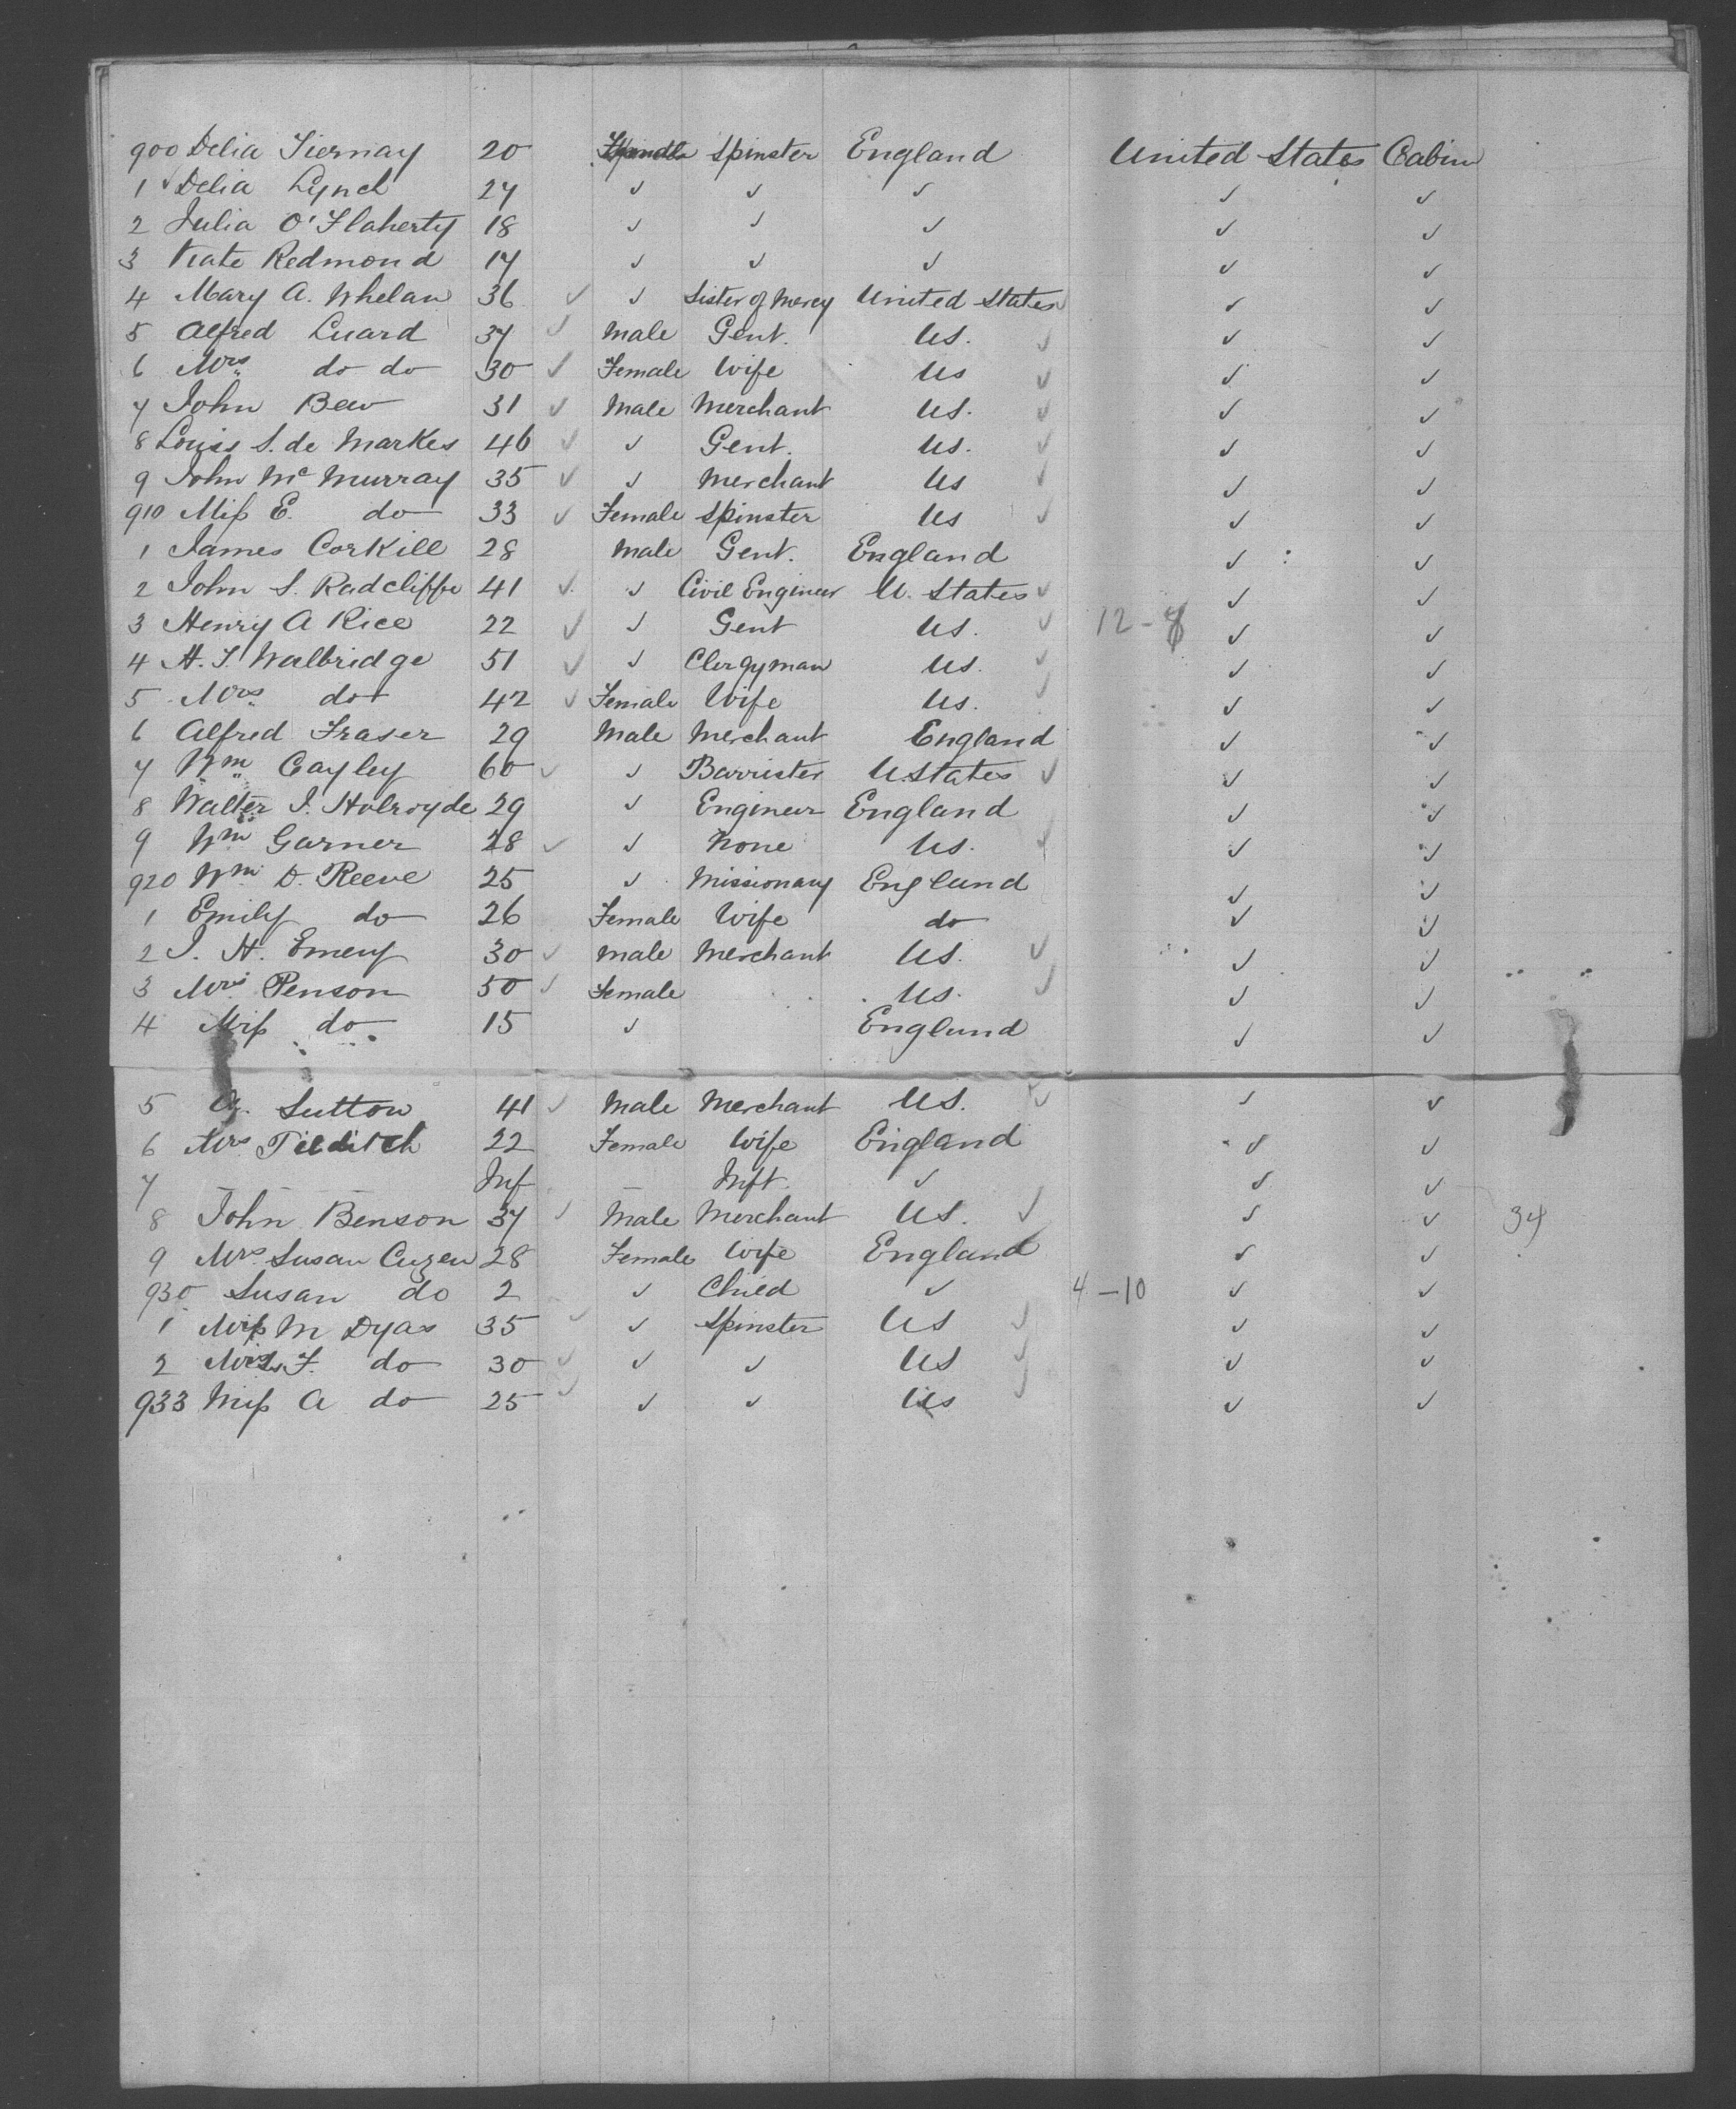 900 Delia Tiernay 20 Spinster England United States Cabin
1 ✓ Delia Lynch 27 ✓ ✓ ✓ ✓ ✓
2 Julia O'Flaherty 18 ✓ ✓ ✓ ✓ ✓
3 Kate Redmond 17 ✓ ✓ ✓ ✓ ✓
4 Mary A. Whelan 36 ✓ ✓ Sister of Mercy United States ✓ ✓ ✓
5 Alfred Luard 37 ✓ Male Gent. US. ✓ ✓ ✓
6 Mrs do do 30 ✓ Female Wife US ✓ ✓ ✓
7 John Bew 31 ✓ Male Merchant US. ✓ ✓ ✓
8 Louis S. de Markes 46 ✓ ✓ Gent. US. ✓ ✓ ✓
9 John Mc Murray 35 ✓ ✓ Merchant US ✓ ✓ ✓
910 Miss E. do 33 ✓ Female Spinster US ✓ ✓ ✓
1 James Corkill 28 Male Gent. England ✓ ✓
2 John S. Radcliffe 41 ✓ ✓ Civil Engineer U. States ✓ ✓ ✓
3 Henry A Rice 22 ✓ ✓ Gent US. ✓ 12 - ✓ ✓
4 H. S. Walbridge 51 ✓ ✓ Clergyman US. ✓ ✓ ✓
5 Mrs do 42 ✓ Female Wife US. ✓ ✓ ✓
6 Alfred Fraser 29 Male Merchant England ✓ ✓
7 Wm Cayley 60 ✓ ✓ Barrister U.States ✓ ✓ ✓
8 Walter J. Holroyde 29 ✓ Engineer England ✓ ✓
9 Wm Garner 28 ✓ ✓ None US. ✓ ✓ ✓
920 Wm D. Reeve 25 ✓ Missionary England ✓ ✓
1 Emily do 26 Female Wife do ✓ ✓
2 J. H. Emery 30 ✓ Male Merchant US. ✓ ✓ ✓
3 Mrs Penson 50 ✓ Female US. ✓ ✓ ✓
4 Miss do 15 ✓ England ✓ ✓
5 Sutton 41 ✓ Male Merchant US. ✓ ✓ ✓
6 Mrs Tilditch 22 Female Wife England ✓ ✓
7 — — Inf — Inft. ✓ ✓ ✓
8 John Benson 37 ✓ Male Merchant US. ✓ ✓ ✓ 34
9 Mrs Susan Cuzen 28 Female Wife England ✓ ✓
930 Susan do 2 ✓ Child ✓ 4 - 10 ✓ ✓
1 Miss M Dyas 35 ✓ ✓ Spinster US ✓ ✓ ✓
2 Miss F. do 30 ✓ ✓ ✓ US ✓ ✓ ✓
933 Miss A do 25 ✓ ✓ ✓ US ✓ ✓ ✓